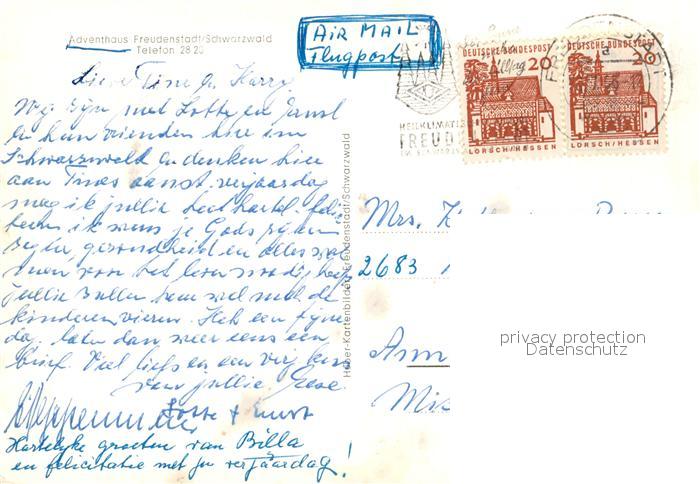 Adventhaus Freudenstadt/Schwarzwald
Telefon 28 20
AIR MAIL
Flugpost
DEUTSCHE BUNDESPOST
20
LORSCH/HESSEN
DEUTSCHE BUNDESPOST
20
LORSCH/HESSEN
HEILKLIMATI
FREUD
Lieve Tine & Harry
Wij zijn met Lotte en Ernst
en hun vrienden hier in
Schwarzwald en denken hier
aan Tines aanst. verjaardag
mag ik jullie heel hartel. felici
ik wens je Gods rijken
Zegen gezondheid en alles wat
men voor het leven nodig heeft
jullie zullen hem wel met de
kinderen vieren. Heb een fijne
dag. laten dan weer eens een
brief. Veel liefs en een
van jullie
Lotte + Ernst
Hartelyke groeten van Billa
en felicitatie met je verjaardag!
Huber-Kartenbilder Freudenstadt/Schwarzwald
Mrs.
2683
privacy protection
Datenschutz